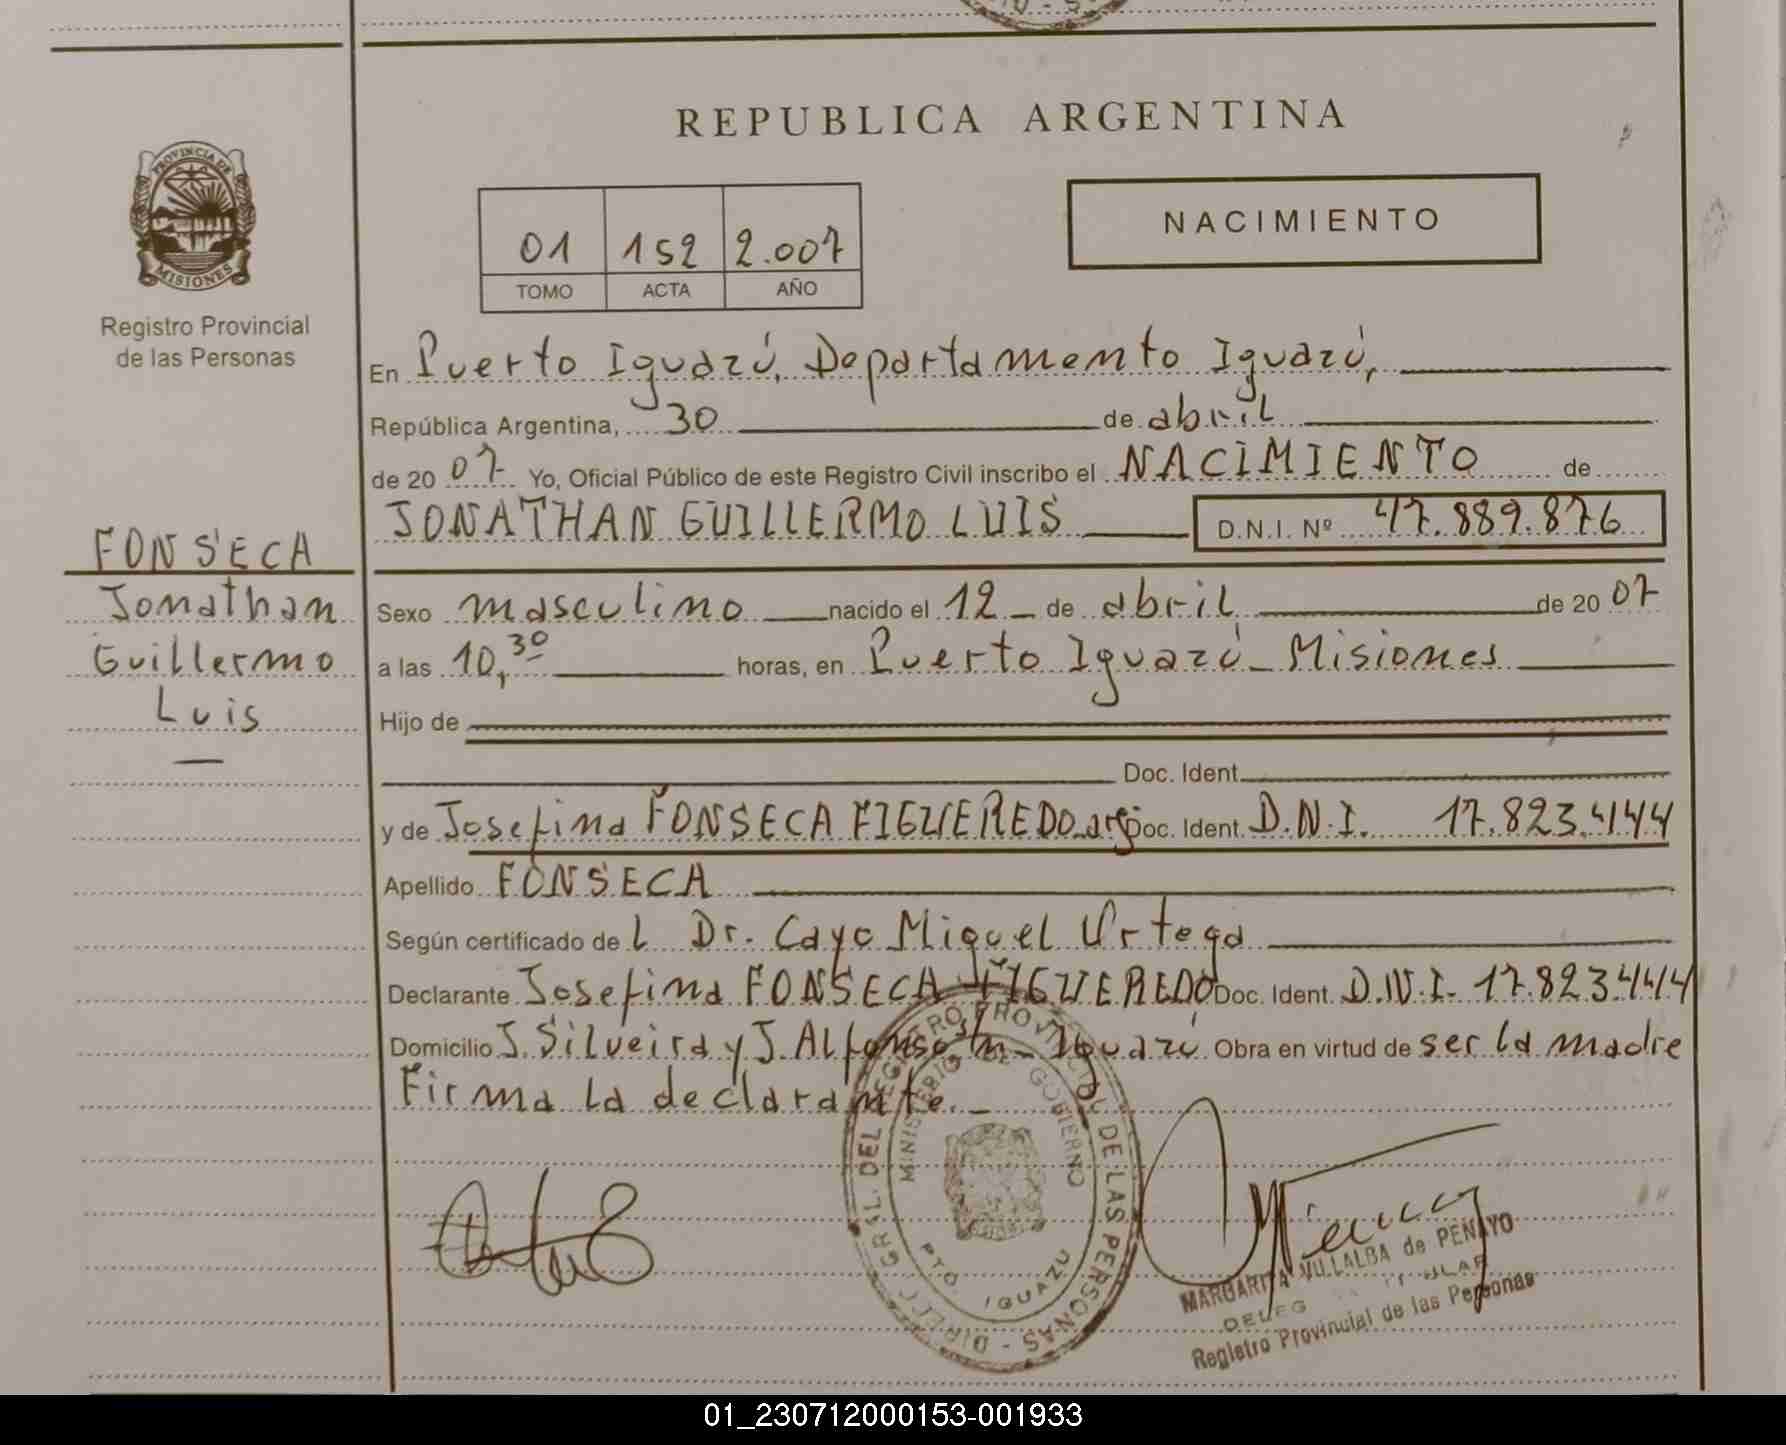 REPUBLICA ARGENTINA
PROVINCIA DE
MISIONES
Registro Provincial
de las Personas
01 152 2.007
TOMO ACTA AÑO
NACIMIENTO
En Puerto Iguazú, Departamento Iguazú,
República Argentina, 30 de abril
de 20 07 Yo, Oficial Público de este Registro Civil inscribo el NACIMIENTO de
JONATHAN GUILLERMO LUIS D.N.I. Nº 47.889.876
FONSECA
Jonathan
Guillermo
Luis
Sexo masculino nacido el 12 de abril de 20 07
a las 10,30 horas, en Puerto Iguazú - Misiones
Hijo de
Doc. Ident.
y de Josefina FONSECA FIGUEREDO arg Doc. Ident. D.N.I. 17.823.444
Apellido FONSECA
Según certificado de L Dr. Cayo Miguel Urtega
Declarante Josefina FONSECA FIGUEREDO Doc. Ident. D.N.I. 17.823.444
Domicilio J. Silveira y J. Alfonso s/n - Iguazú Obra en virtud de ser la madre
Firma la declarante. -
DIRECC. GRAL. DEL REGISTRO PROVINCIAL DE LAS PERSONAS -
MINISTERIO DE GOBIERNO
PTO. IGUAZU
MARGARITA VILLALBA de PENAYO
DELEG TITULAR
Registro Provincial de las Personas
01_230712000153-001933